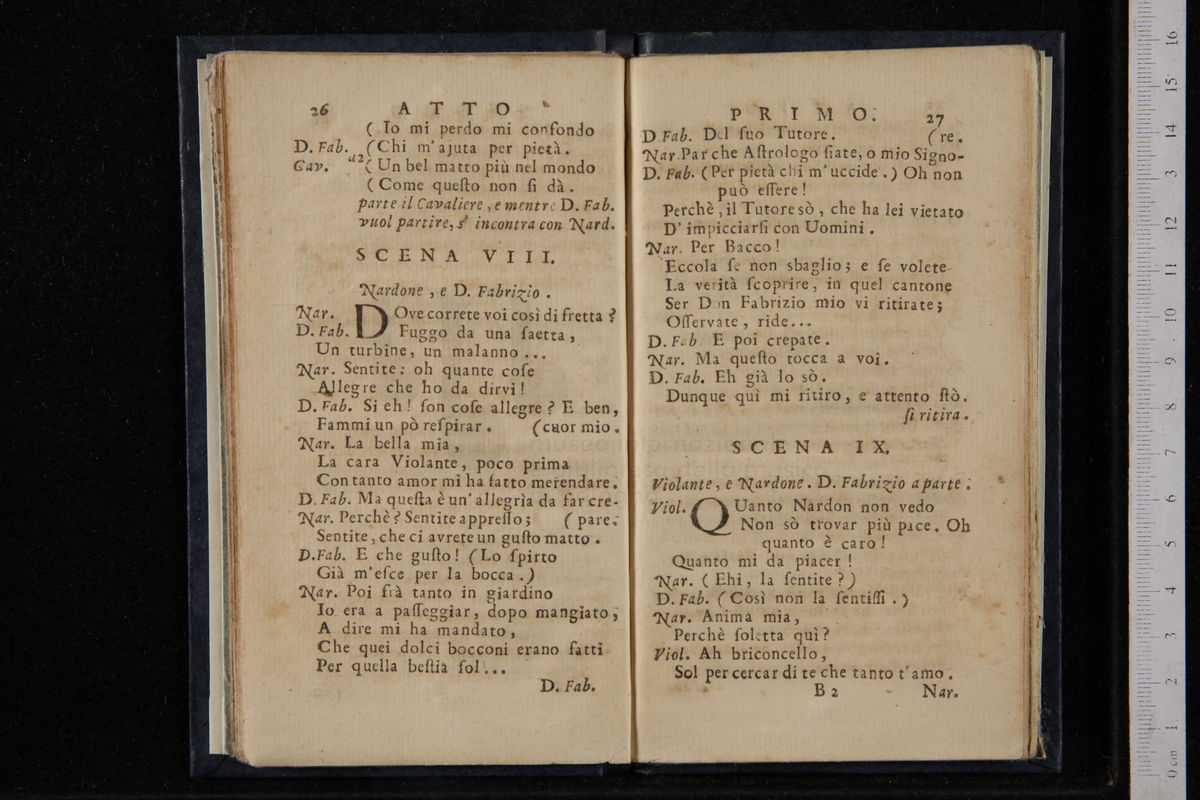 26 ATTO
( Io mi perdo mi confondo
D. Fab. (Chi m'ajuta per pietà.
Cav. a2 ( Un bel matto più nel mondo
( Come queſto non ſi dà.
parte il Cavaliere, e mentre D. Fab.
vuol partire, s' incontra con Nard.
SCENA VIII.
Nardone, e D. Fabrizio.
Nar. DOve correte voi così di fretta?
D. Fab. Fuggo da una ſaetta,
Un turbine, un malanno...
Nar. Sentite: oh quante coſe
Allegre che ho da dirvi!
D. Fab. Si eh! ſon coſe allegre? E ben,
Fammi un pò reſpirar. (cuor mio.
Nar. La bella mia,
La cara Violante, poco prima
Con tanto amor mi ha fatto merendare.
D. Fab. Ma queſta è un' allegrìa da far cre-
Nar. Perchè? Sentite appreſſo; (pare.
Sentite, che ci avrete un guſto matto.
D. Fab. E che guſto! (Lo ſpirto
Già m'eſce per la bocca.)
Nar. Poi frà tanto in giardino
Io era a paſſeggiar, dopo mangiato;
A dire mi ha mandato,
Che quei dolci bocconi erano fatti
Per quella beſtia ſol...
D. Fab.
PRIMO. 27
D. Fab. Del ſuo Tutore. (re.
Nar. Par che Aſtrologo ſiate, o mio Signo-
D. Fab. (Per pietà chi m'uccide.) Oh non
può eſſere!
Perchè, il Tutore sò, che ha lei vietato
D' impicciarſi con Uomini.
Nar. Per Bacco!
Eccola ſe non sbaglio; e ſe volete
La verità ſcoprire, in quel cantone
Ser Don Fabrizio mio vi ritirate;
Oſſervate, ride...
D. Fab. E poi crepate.
Nar. Ma queſto tocca a voi.
D. Fab. Eh già lo sò.
Dunque quì mi ritiro, e attento ſtò.
ſi ritira.
SCENA IX.
Violante, e Nardone. D. Fabrizio a parte.
Viol. QUanto Nardon non vedo
Non sò trovar più pace. Oh
quanto è caro!
Quanto mi da piacer!
Nar. (Ehi, la ſentite?)
D. Fab. (Così non la ſentiſſi.)
Nar. Anima mia,
Perchè ſoletta quì?
Viol. Ah briconcello,
Sol per cercar di te che tanto t'amo.
B 2 Nar.
0 cm 1 2 3 4 5 6 7 8 9 10 11 12 3 14 15 16